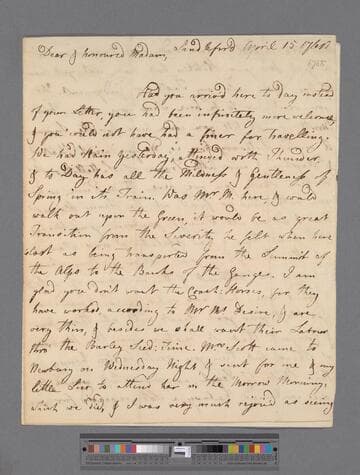 Sandleford April 15 1765
1765
Dear & honoured Madam,
Had you arrived here to Day instead
of your Letter, you had been infinitely more welcome,
& you could not have had a finer for travelling.
We had Rain yesterday, attended with Thunder,
& to Day has all the Mildness & Gentleness of
Spring in its Train. Was Mr M. here, & could
walk out upon the Green, it would be as great
Transition from the Severity he felt when here
last as being transported from the Summit of
the Alps to the Banks of the Ganges. I am
glad you don't want the Coach Horses, for they
have worked according to Mr Ms Desire, & are
very thin, & besides we shall want their Labour
thro the Barley Seed-Time. Mrs Scott came to
Newbury on Wednesday Night & sent for me & my
little Sir to attend her in the Morrow Morning,
which we did, & I was very much rejoiced at seeing